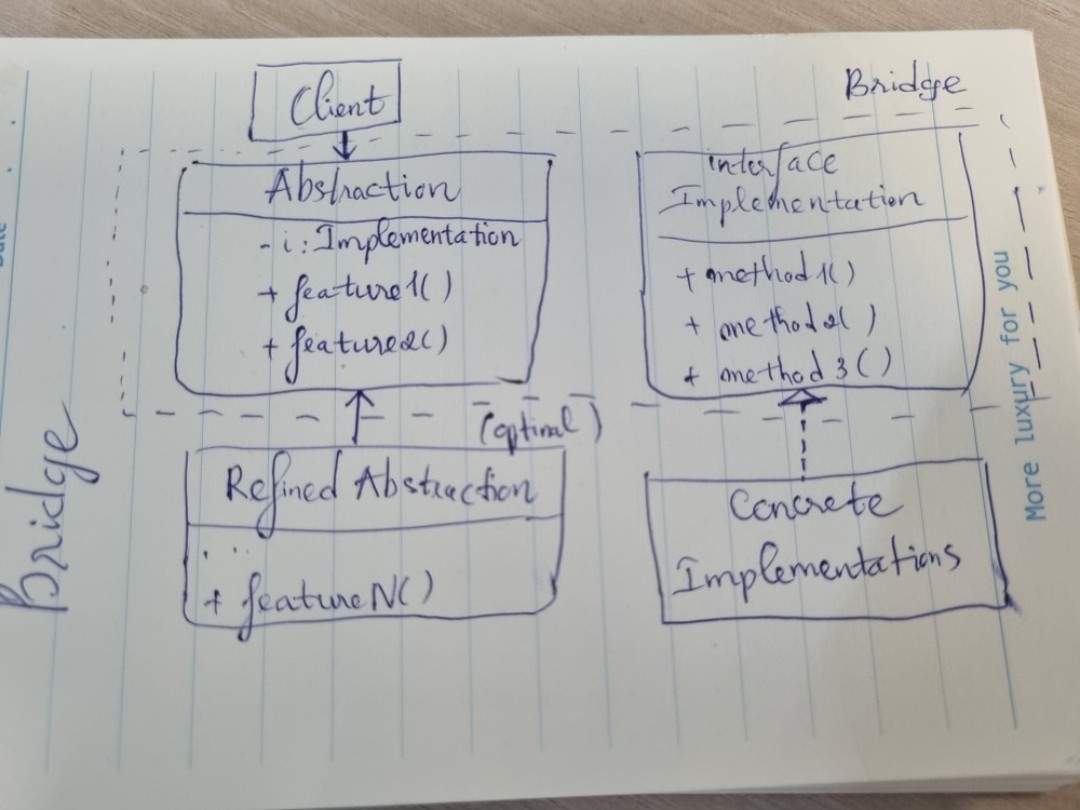 Bridge
Client
Abstraction
- i : Implementation
+ feature1()
+ feature2()
interface
Implementation
+ method1()
+ method2()
+ method3()
(optinal)
Refined Abstraction
...
+ featureN()
Concrete
Implementations
Bridge
More luxury for you
Date